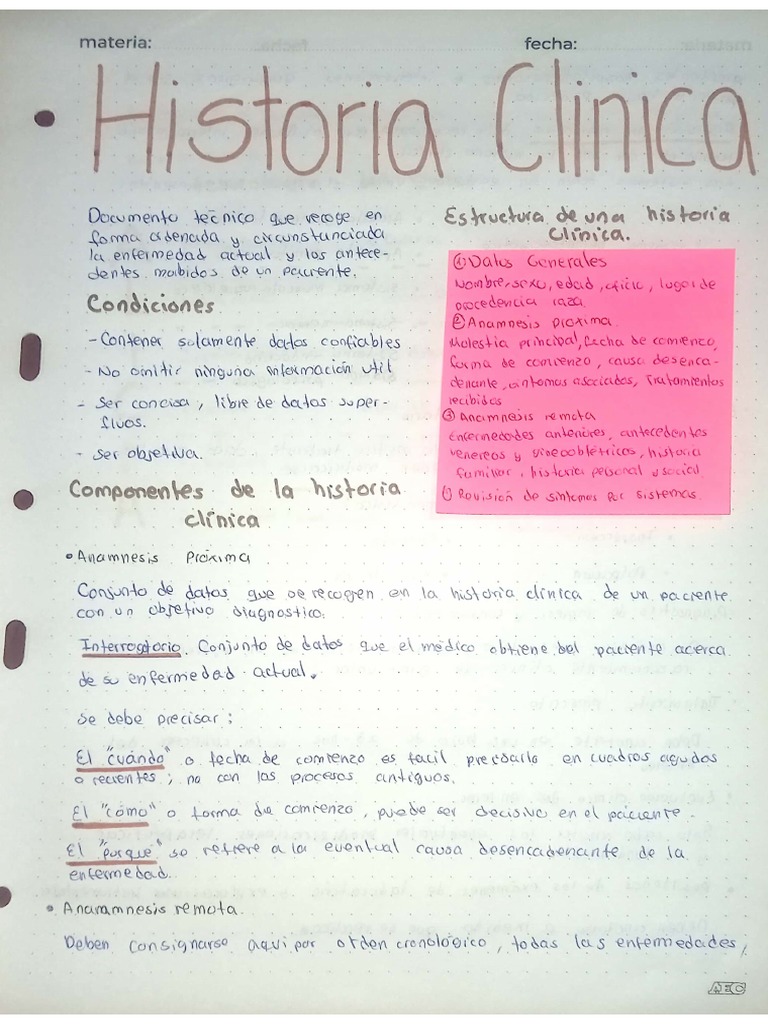 materia:
fecha:
Historia Clinica
Documento técnico que recoge en
forma ordenada y circunstanciada
la enfermedad actual y los antece-
dentes morbidos de un paciente.
Condiciones
- Contener solamente datos confiables
- No omitir ninguna información util
- Ser concisa, libre de datos super-
fluos.
- Ser objetiva.
Estructura de una historia
clínica.
① Datos Generales
Nombre, sexo, edad, oficio, lugar de
procedencia raza.
② Anamnesis proxima
Molestia principal, fecha de comienzo,
forma de comienzo, causa desenca-
denante, sintomas asociados, Tratamientos
recibidos
③ Anamnesis remota
Enfermedades anteriores, antecedentes
venereos y historia
familiar, historia personal y social
Revisión de sintomas por sistemas.
Componentes de la historia
clínica
• Anamnesis Próxima
Conjunto de datos que se recogen en la historia clínica de un paciente
con un objetivo diagnostico.
Interrogatorio. Conjunto de datos que el médico obtiene del paciente acerca
de su enfermedad actual.
se debe precisar:
El "cuándo" o fecha de comienzo es facil precisarlo en cuadros agudos
o recientes; no con los procesos antiguos.
El "cómo" o forma de comienzo, puede ser decisivo en el paciente.
El "porque" se refiere a la eventual causa desencadenante de la
enfermedad.
• Anaramnesis remota.
Deben consignarse aqui por orden cronológico, todas las enfermedades,
AEC